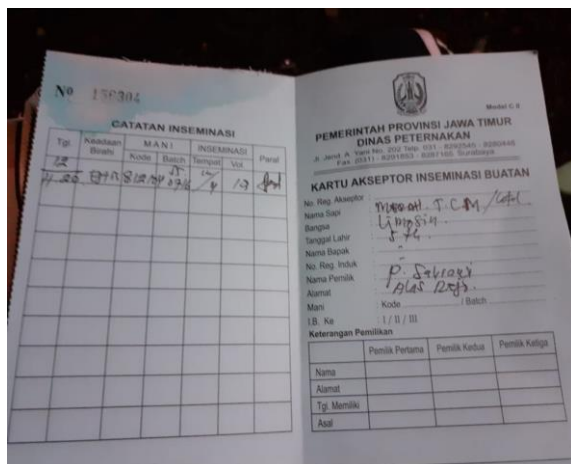 Nº 156304
CATATAN INSEMINASI
Tgl. Keadaan Birahi MANI INSEMINASI Paraf
Kode Batch Tempat Vol
12
Model C II
PEMERINTAH PROVINSI JAWA TIMUR
DINAS PETERNAKAN
Jl. Jend. A. Yani No. 202 Telp. 031 - 8292545 - 8280448
Fax. (031) - 8291853 - 8287162. Surabaya
KARTU AKSEPTOR INSEMINASI BUATAN
No. Reg. Akseptor :
Nama Sapi :
Bangsa : Limosin
Tanggal Lahir : 5 th.
Nama Bapak : -
No. Reg. Induk : -
Nama Pemilik :
Alamat : Alas
Mani : Kode / Batch
I.B. Ke : I / II / III
Keterangan Pemilikan
Pemilik Pertama Pemilik Kedua Pemilik Ketiga
Nama
Alamat
Tgl. Memiliki
Asal